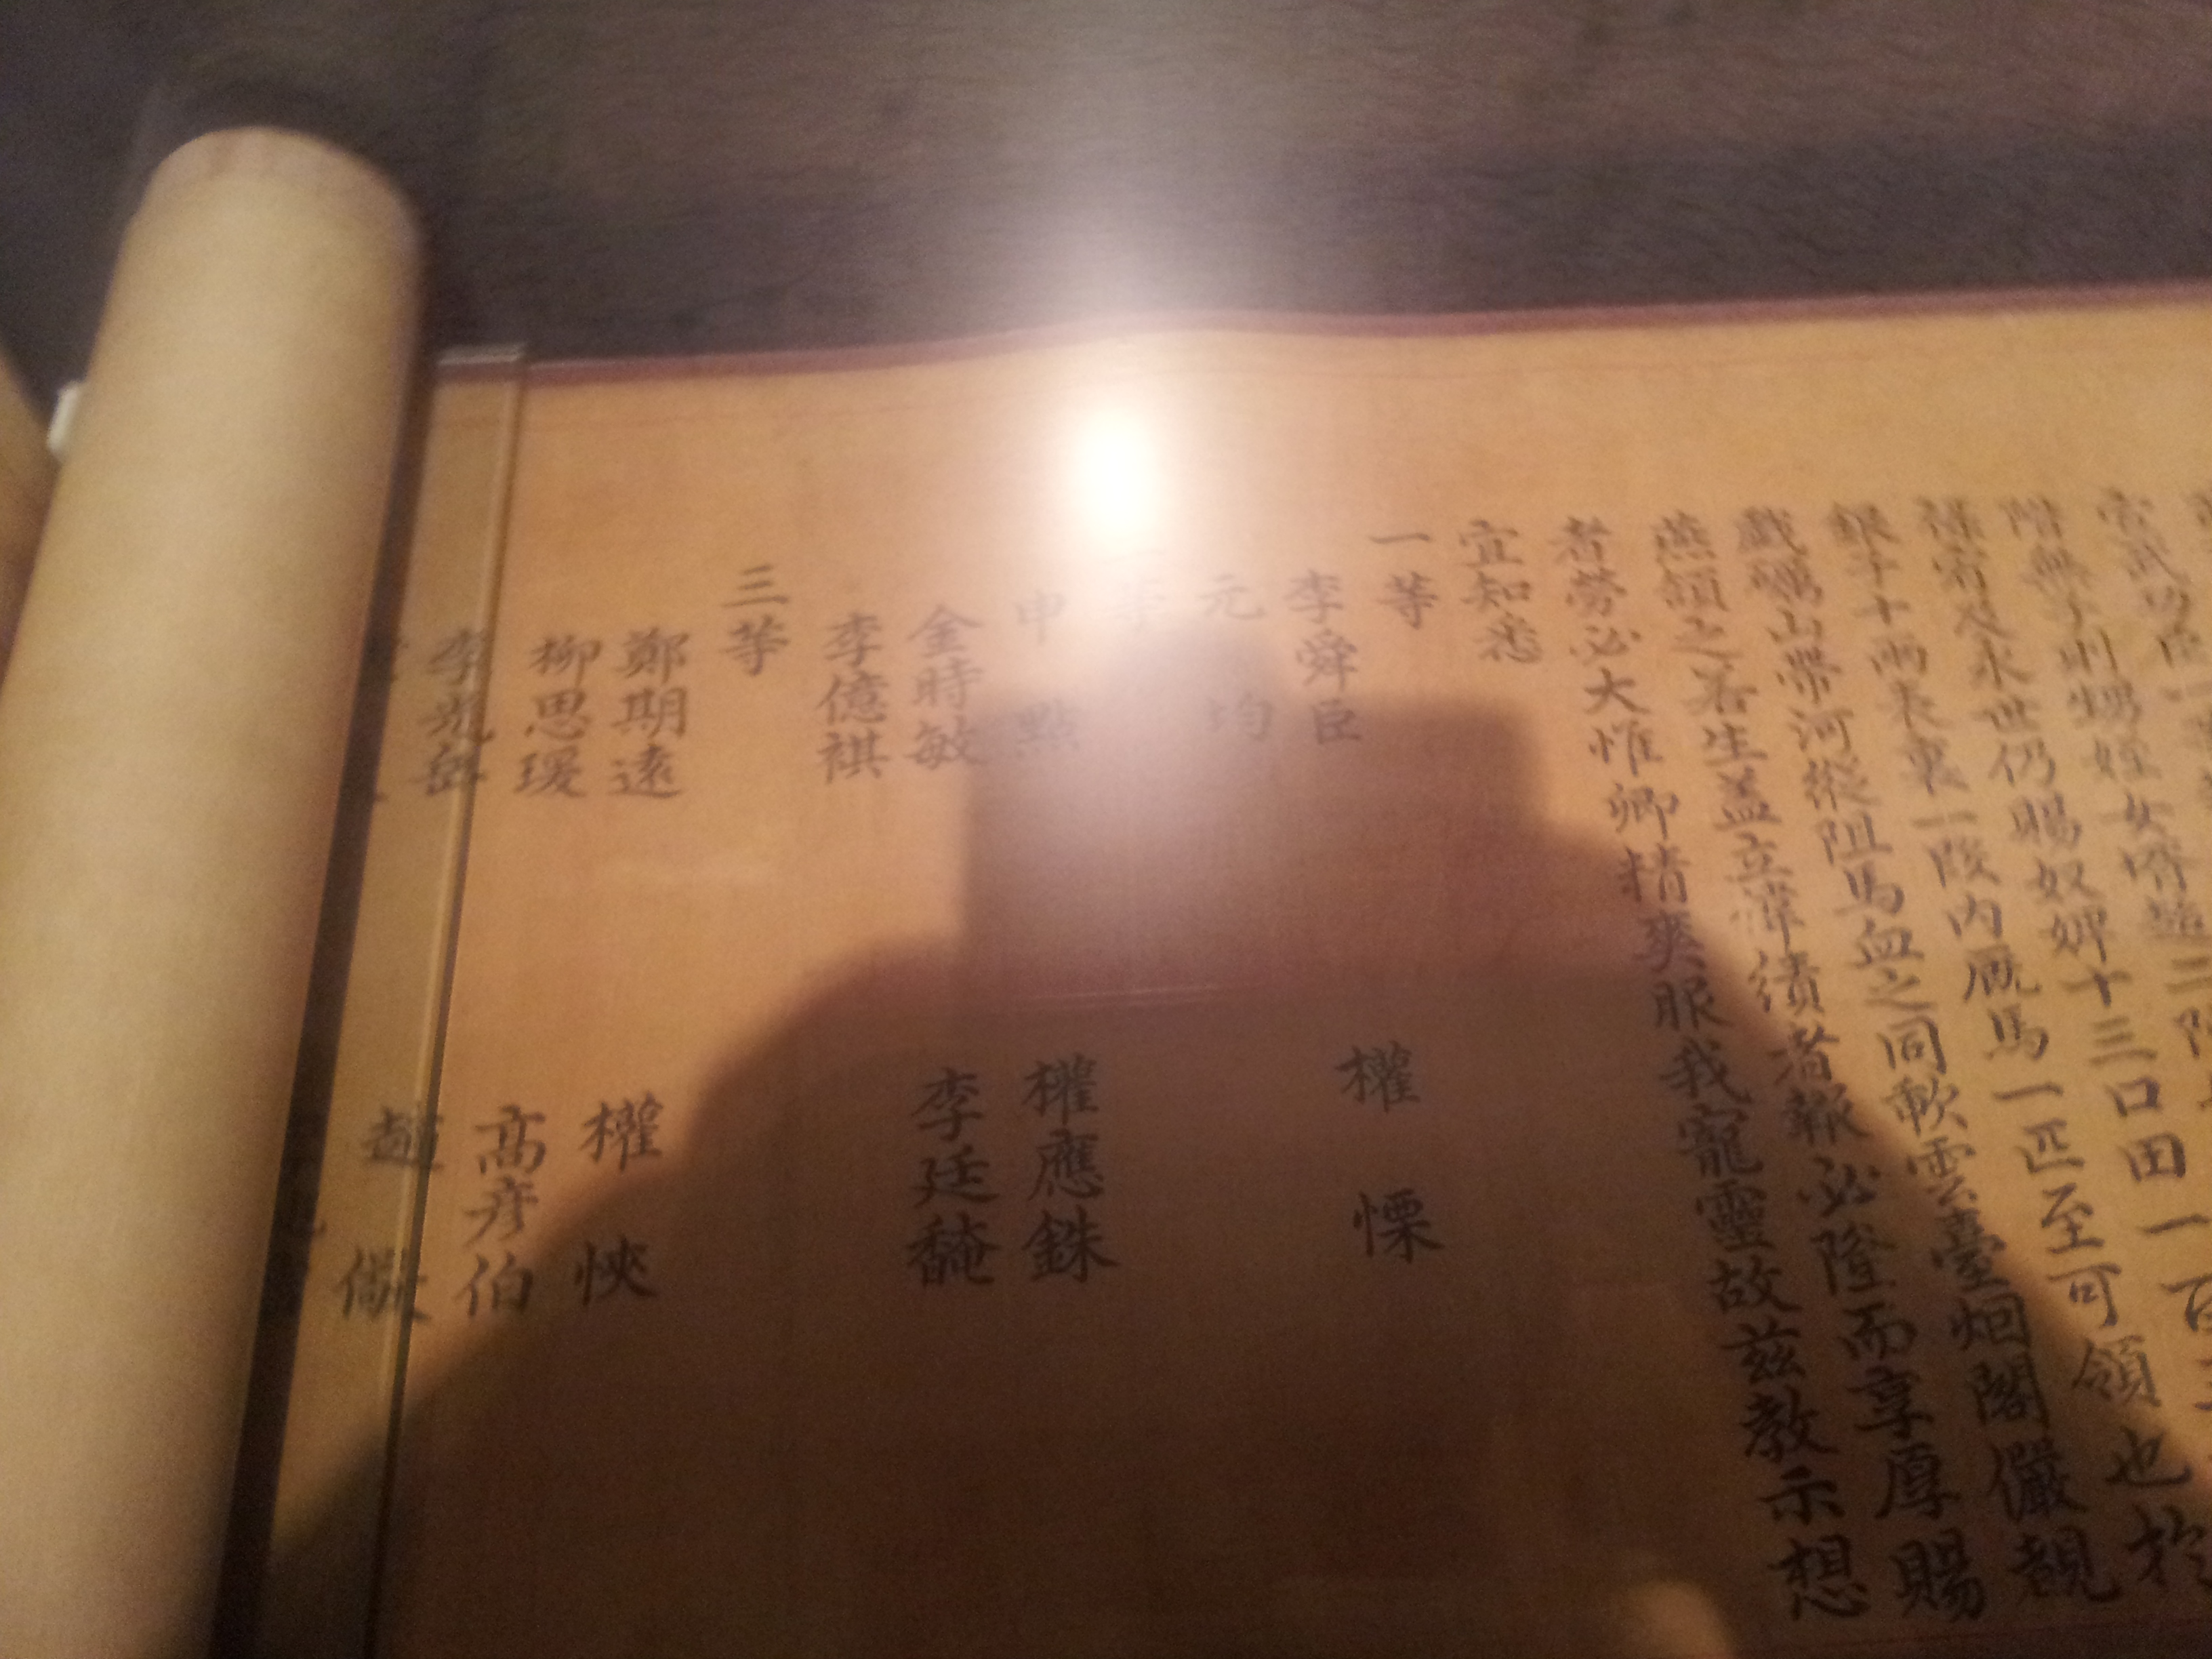 階無子則甥姪女壻超三階
祿宥及永世仍賜奴婢十三口田一百
銀子十兩表裏一段內廐馬一匹至可領也於
戱礪山帶河縱阻馬血之同軟雲臺烟閣儼覩
燕頷之着生盖立偉績者報必隆而享厚賜
者勞必大惟卿精爽服我寵靈故玆敎示想
宜知悉
一等
李舜臣 權慄
元均
等
申點 權應銖
金時敏 李廷馣
李億祺
三等
鄭期遠 權悏
柳思瑗 高彦伯
李光岳 趙儆